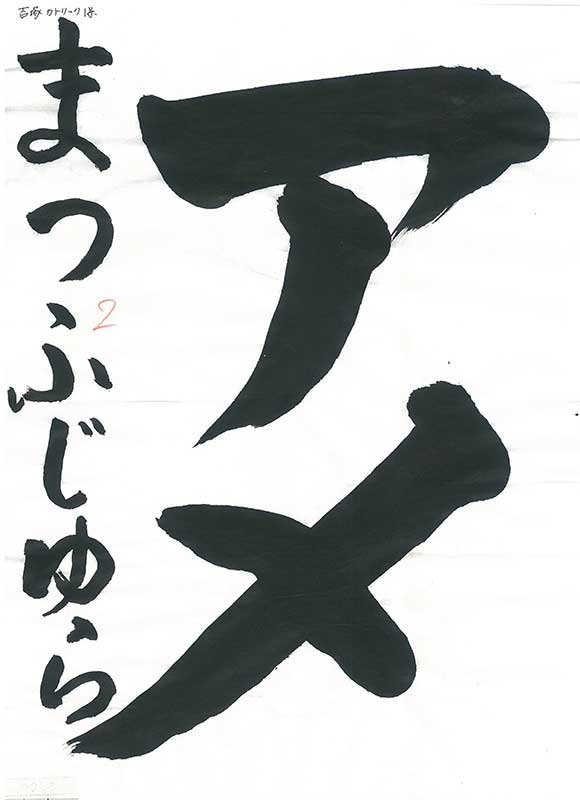 吉塚カトリック保
アメ
まつふじゆら
2